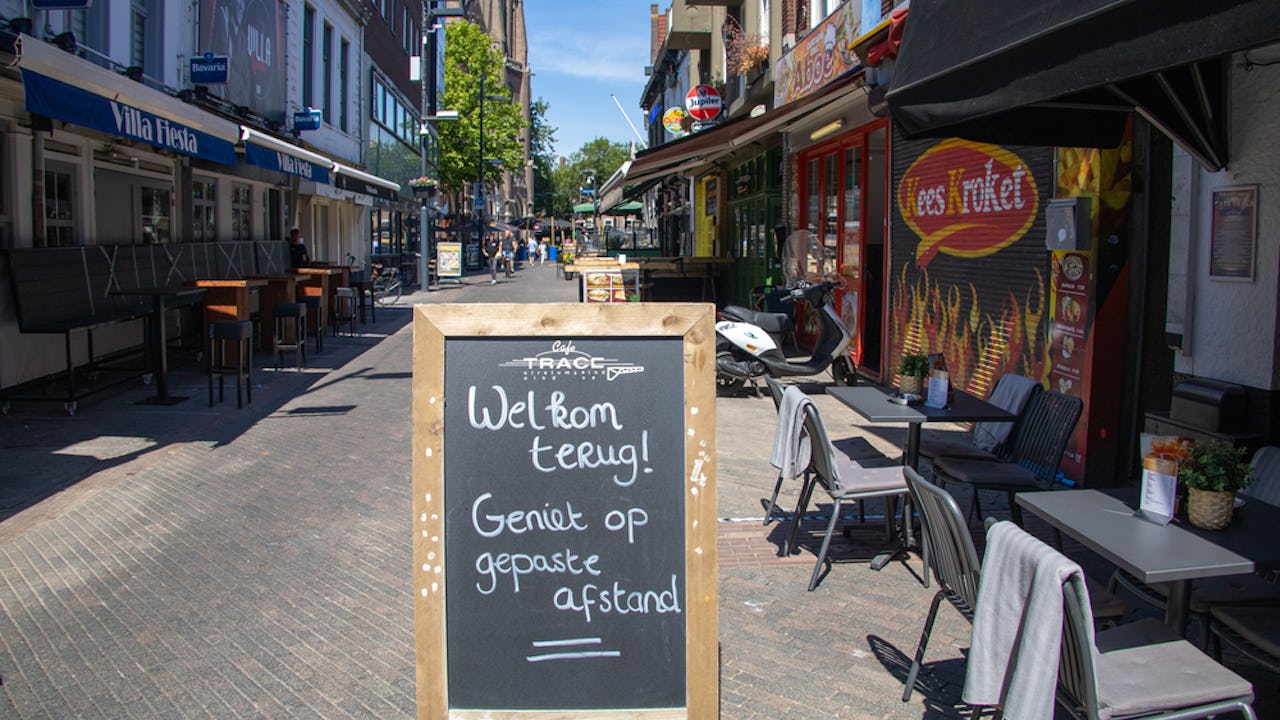 VILLA
Bavaria
Bavaria
Villa Fiesta
Villa Fiesta
Jupiler
Aboe
Kees Kroket
Cafe
TRACE
Welkom
terug!
Geniet op
gepaste
afstand